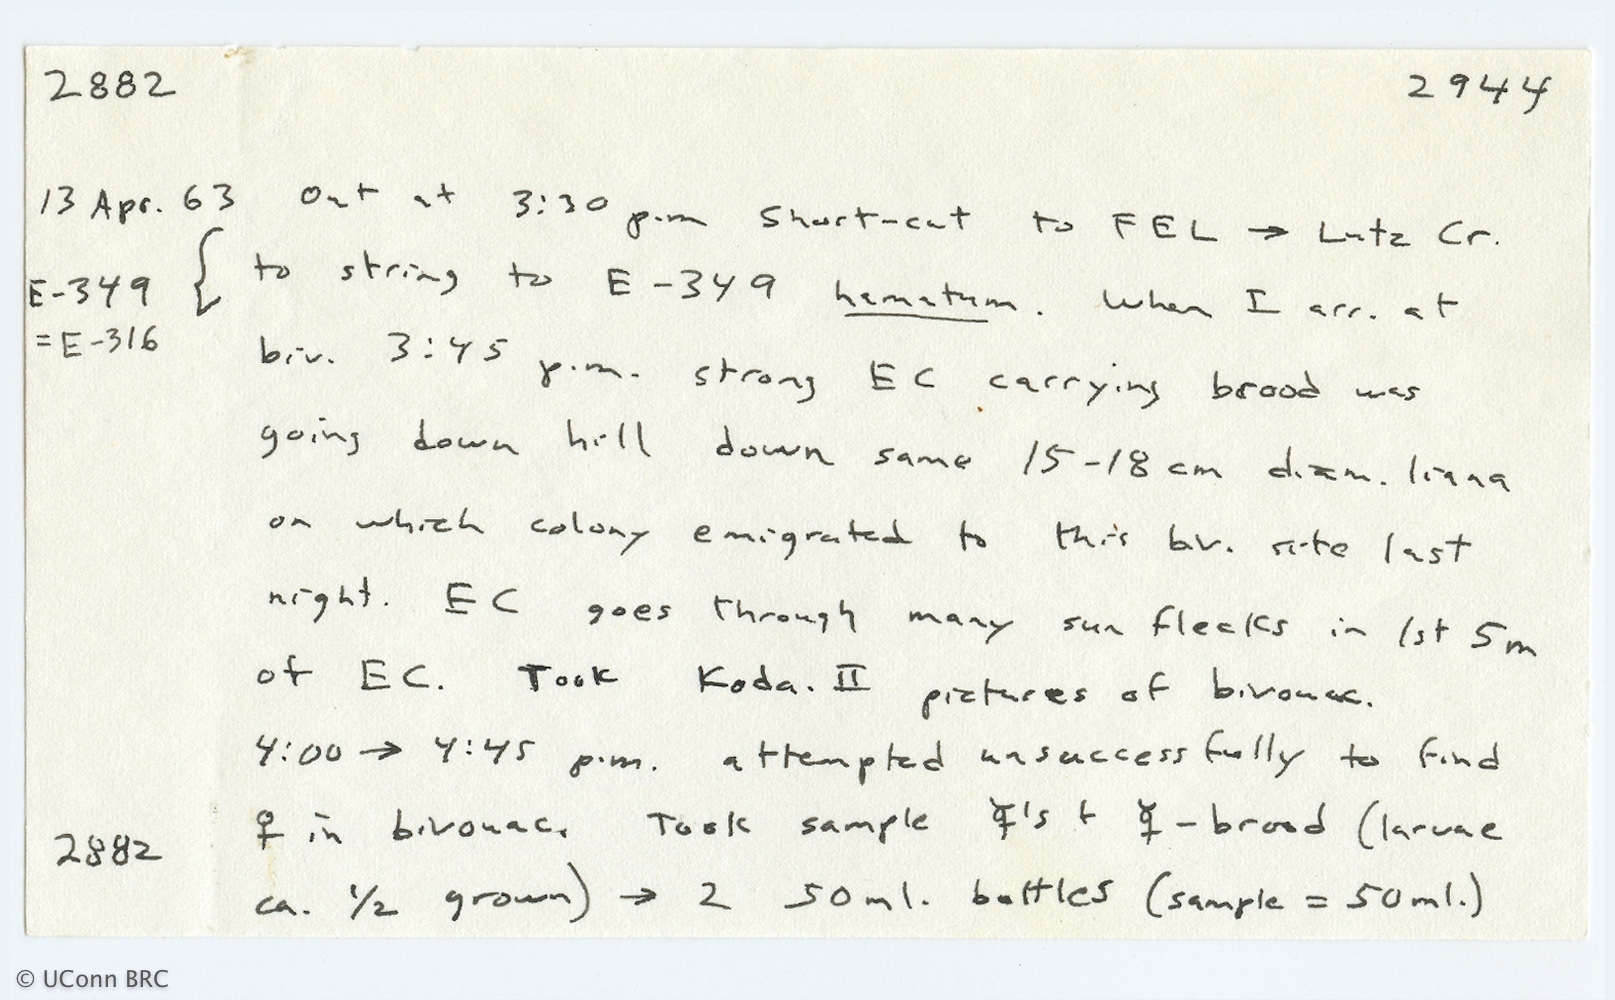 2882 2944
13 Apr. 63 Out at 3:30 p.m short-cut to FEL → Lutz Cr.
E-349 { to string to E-349 hamatum. When I arr. at
= E-316 biv. 3:45 p.m. strong EC carrying brood was
going down hill down same 15-18 cm diam. liana
on which colony emigrated to this biv. site last
night. EC goes through many sun flecks in 1st 5m
of EC. Took Koda. II pictures of bivouac.
4:00 → 4:45 p.m. attempted unsuccessfully to find
♀ in bivouac. Took sample ☿'s + ☿-brood (larvae
2882 ca. 1/2 grown) → 2 50ml. bottles (sample = 50ml.)
© UConn BRC